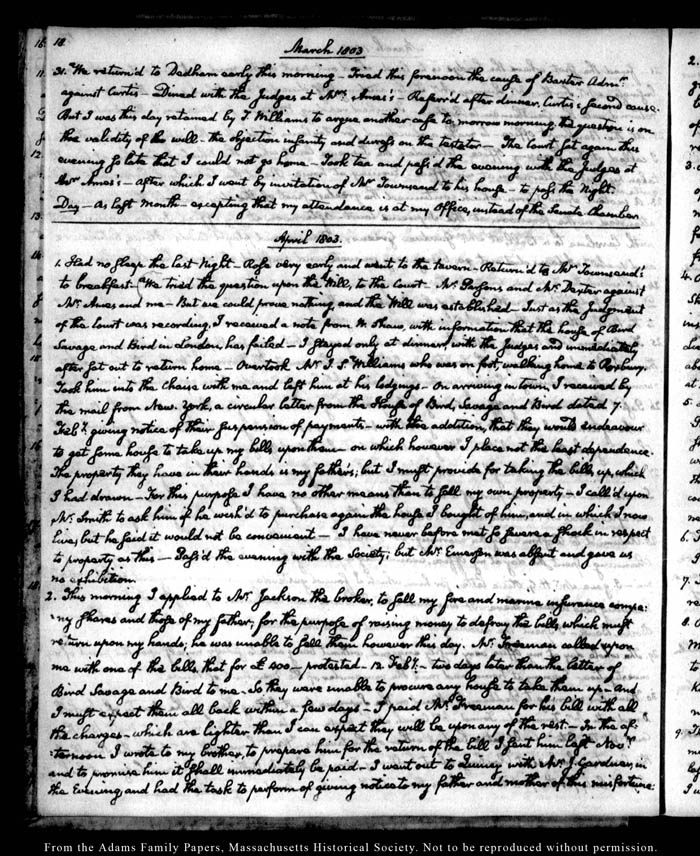 18
March 1803
31. We return'd to Dedham early this morning — Tried this forenoon the cause of Baxter Admr.
against Curtis — Dined with the Judges at Mrs. Ames's — Referr'd after dinner, Curtis's second cause.
But I was this day retained by T. Williams to argue another case to-morrow morning, the question is on
the validity of the will — the objection insanity and duress on the testator — The Court sat again this
evening so late that I could not go home — Took tea and pass'd the evening with the Judges at
Mrs. Ames's — After which I went by invitation of Mr. Townsend to his house — to pass the Night.
Day — As last month — excepting that my attendance is at my Office, instead of the Senate Chamber.
April 1803.
1. Had no sleep the last Night — Rose very early and went to the tavern — Return'd to Mr. Townsend's
to breakfast — We tried the question upon the Will, to the Court — Mr. Parsons and Mr. Dexter against
Mr. Ames and me — But we could prove nothing, and the Will was established — Just as the Judgment
of the Court was recording, I received a note from W. Shaw, with information that the house of Bird
Savage and Bird in London, has failed — I stayed only at dinner, with the Judges and immediately
after set out to return home — Overtook Mr. T. S. Williams who was on foot, walking home to Roxbury.
Took him into the Chaise with me and left him at his lodgings — On arriving in town, I received by
the mail from New-York, a circular letter from the House of Bird, Savage and Bird dated 7.
Feby. giving notice of their suspension of payments — with this addition, that they would endeavour
to get some house to take up my bills upon them — on which however I place not the least dependence.
The property they have in their hands is my father's; but I must provide for taking the bills up, which
I had drawn — For this purpose I have no other means than to sell my own property — I call'd upon
Mr. Smith to ask him if he wish'd to purchase again the house I bought of him, and in which I now
live, but he said it would not be convenient — I have never before met so severe a shock in respect
to property as this — Pass'd the evening with the Society; but Mr. Emerson was absent and gave us
no exhibition.
2. This morning I applied to Mr. Jackson the broker, to sell my fire and marine insurance compa:
:ny shares and those of my father, for the purpose of raising money to defray the bills, which must
return upon my hands; he was unable to sell them however this day. Mr. Freeman called upon
me with one of the bills, that for £400 — protested — 12 Feby. — two days later than the letter of
Bird Savage and Bird to me — So they were unable to procure any house to take them up — And
I must expect them all back within a few days — I paid Mr. Freeman for his bill with all
the charges — which are lighter than I can expect they will be upon any of the rest — In the af:
:ternoon I wrote to my brother, to prepare him for the return of the bill I sent him last Novr.
and to promise him it shall immediately be paid — I went out to Quincy with Mr. J. Gardner, in
the Evening, and had the task to perform of giving notice to my father and mother of this misfortune:
From the Adams Family Papers, Massachusetts Historical Society. Not to be reproduced without permission.